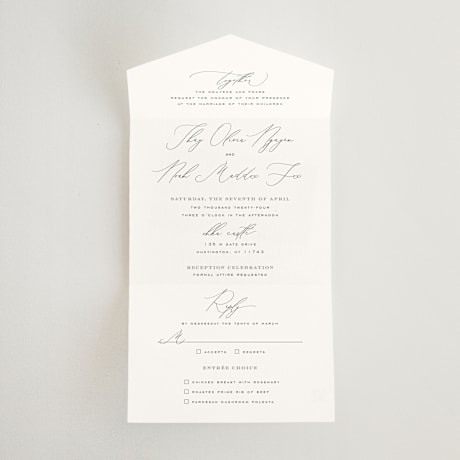 Together
THE NGUYENS AND FOXES
REQUEST THE HONOUR OF YOUR PRESENCE
AT THE MARRIAGE OF THEIR CHILDREN
Thuy Olivia Nguyen
AND
Noah Maddox Fox
SATURDAY, THE SEVENTH OF APRIL
TWO THOUSAND TWENTY-FOUR
THREE O'CLOCK IN THE AFTERNOON
castle
135 W GATE DRIVE
HUNTINGTON, NY 11743
RECEPTION CELEBRATION
FORMAL ATTIRE REQUESTED
Reply
BY WEDNESDAY THE TENTH OF MARCH
M
ACCEPTS REGRETS
ENTRÉE CHOICE
CHICKEN BREAST WITH ROSEMARY
ROASTED PRIME RIB OF BEEF
PARMESAN MUSHROOM POLENTA